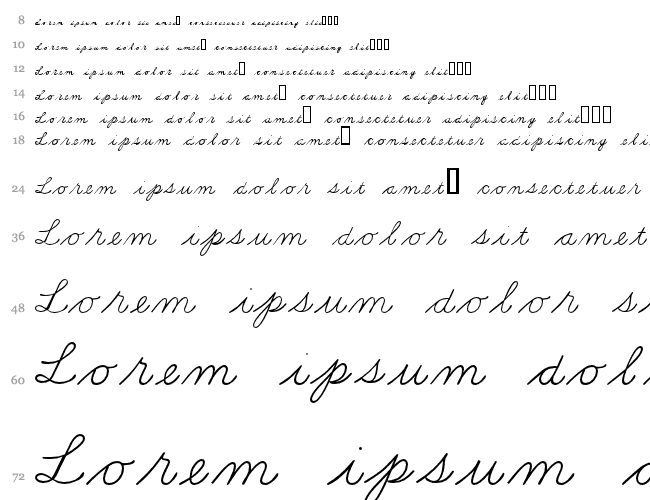 8 Lorem ipsum dolor sit amet□ consectetuer adipiscing elit□□□
10 Lorem ipsum dolor sit amet□ consectetuer adipiscing elit□□□
12 Lorem ipsum dolor sit amet□ consectetuer adipiscing elit□□□
14 Lorem ipsum dolor sit amet□ consectetuer adipiscing elit□□□
16 Lorem ipsum dolor sit amet□ consectetuer adipiscing elit□□□
18 Lorem ipsum dolor sit amet□ consectetuer adipiscing eli
24 Lorem ipsum dolor sit amet□ consectetuer
36 Lorem ipsum dolor sit amet
48 Lorem ipsum dolor si
60 Lorem ipsum dol
72 Lorem ipsum